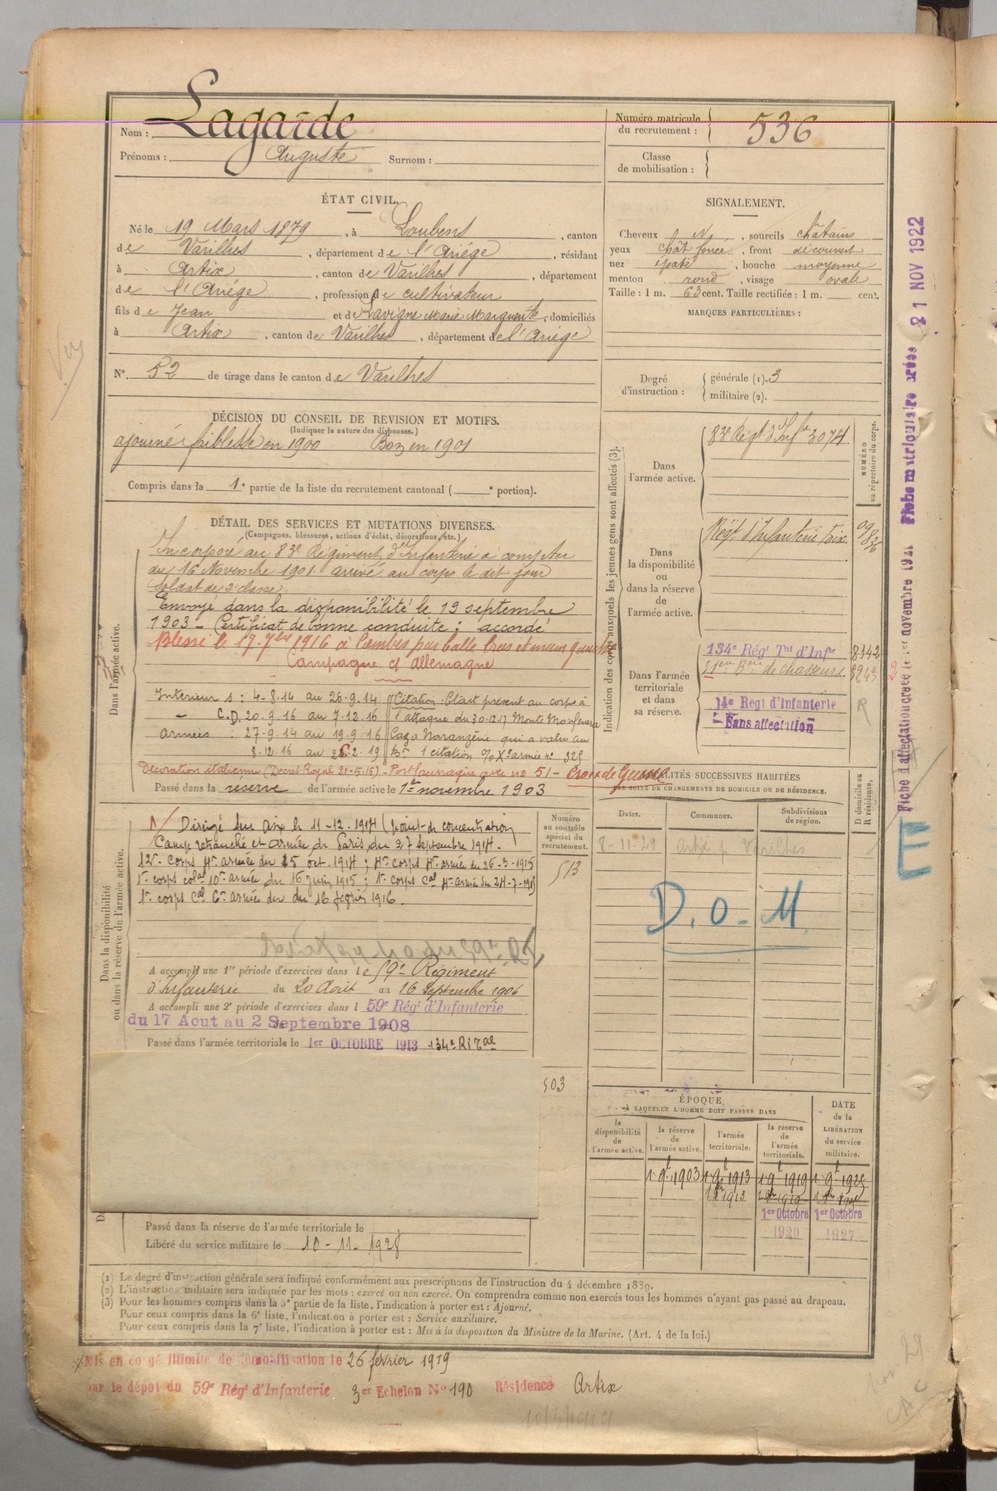 Nom : Lagarde
Prénoms : Auguste Surnom :
Numéro matricule du recrutement : 536
Classe de mobilisation :
ÉTAT CIVIL.
Né le 19 Mars 1879, à Loubens, canton
de Varilhes, département de l'Ariége, résidant
à Artix, canton de Varilhes, département
de l'Ariége, profession de cultivateur
fils de Jean et de Lavigne Marie Marguerite, domiciliés
à Artix, canton de Varilhes, département de l'Ariège
N° 52 de tirage dans le canton de Varilhes
SIGNALEMENT.
Cheveux N, sourcils châtains
yeux chât foncé, front découvert
nez épaté, bouche moyenne
menton rond, visage ovale
Taille : 1 m. 63 cent. Taille rectifiée : 1 m. cent.
MARQUES PARTICULIÈRES :
Degré d'instruction : générale (1). 3
militaire (2).
DÉCISION DU CONSEIL DE REVISION ET MOTIFS.
(Indiquer la nature des dispenses.)
ajourné faiblesse en 1900 Bon en 1901
Compris dans la 1e partie de la liste du recrutement cantonal ( e portion).
DÉTAIL DES SERVICES ET MUTATIONS DIVERSES.
(Campagnes, blessures, actions d'éclat, décorations, etc.)
Dans l'armée active.
Incorporé au 83e Régiment d'Infanterie à compter
du 16 Novembre 1901 arrivé au corps le dit jour
soldat de 2e classe.
Envoyé dans la disponibilité le 19 septembre
1903 – Certificat de bonne conduite : accordé
Blessé le 17-7bre 1916 à par balle bras et main gauche
Campagne c/ Allemagne
Intérieur S : 4-8-14 au 26-9-14
– C.D. 20-9-16 au 7-12-16
Armées : 27-9-14 au 19-9-16
8-12-16 au 2-19
Citation – Etait présent au corps à
l'attaque du 30-12-17 Monte
qui a valu au
Bon 1 citation O/ Xe armée n° 328
Décoration italienne (Decret Royal 21-5-15) – n° 51 – Croix de Guerre
Passé dans la réserve de l'armée active le 1er novembre 1903
Indication des corps auxquels les jeunes gens sont affectés (3).
NUMÉRO au répertoire du corps.
Dans l'armée active.
83e Régt d'Inf 3074
Dans la disponibilité ou dans la réserve de l'armée active.
Régt d'Infanterie Foix
Dans l'armée territoriale et dans sa réserve.
134e Régt Tal d'Infie 8142
de chasseurs
14e Régt d'Infanterie R
Sans affectation
LOCALITÉS SUCCESSIVES HABITÉES
PAR SUITE DE CHANGEMENTS DE DOMICILE OU DE RÉSIDENCE.
Dates. Communes. Subdivisions de région. D domicile ou R résidence.
8-11-29 Artix p Varilhes
D. O. M
Dans la disponibilité ou dans la réserve de l'armée active.
Numéro au contrôle spécial du recrutement.
513
A/ Dirigé sur Aix le 11-12-1914 (point de concentration
Camp retranché et Armée de Paris du 27 septembre 1914.
12e Corps 4e armée du 25 oct. 1914 ; 4e corps 4e armée du 26-3-1915
1er corps colal 10e armée du 16 juin 1915 ; 1er corps Cal 4e armée du 24-7-1915
1er corps Cal 6e armée du 16 février 1916.
A accompli une 1re période d'exercices dans le 59e Régiment
d'Infanterie du 20 Août au 16 Septembre 1906
A accompli une 2e période d'exercices dans l 59e Régt d'Infanterie
du 17 Aout au 2 Septembre 1908
Passé dans l'armée territoriale le 1er OCTOBRE 1913 134e RIT
503
ÉPOQUE
A LAQUELLE L'HOMME DOIT PASSER DANS
la disponibilité de l'armée active. la réserve de l'armée active. l'armée territoriale. la réserve de l'armée territoriale. DATE de la LIBÉRATION du service militaire.
1er 9bre 1903
1er Octobre 1920
1er Octobre 1927
Passé dans la réserve de l'armée territoriale le
Libéré du service militaire le 10-11-1928
(1) Le degré d'instruction générale sera indiqué conformément aux prescriptions de l'instruction du 4 décembre 1889.
(2) L'instruction militaire sera indiquée par les mots : exercé ou non exercé. On comprendra comme non exercés tous les hommes n'ayant pas passé au drapeau.
(3) Pour les hommes compris dans la 5e partie de la liste, l'indication à porter est : Ajourné.
Pour ceux compris dans la 6e liste, l'indication à porter est : Service auxiliaire.
Pour ceux compris dans la 7e liste, l'indication à porter est : Mis à la disposition du Ministre de la Marine. (Art. 4 de la loi.)
Mis en congé illimité de démobilisation le 26 février 1919
par le dépôt du 59e Régt d'Infanterie 3er Echelon N° 190 Résidence Artix
Fiche d'affectation créée le 1er novembre 1921 Fiche matriculaire créée 21 NOV 1922
E